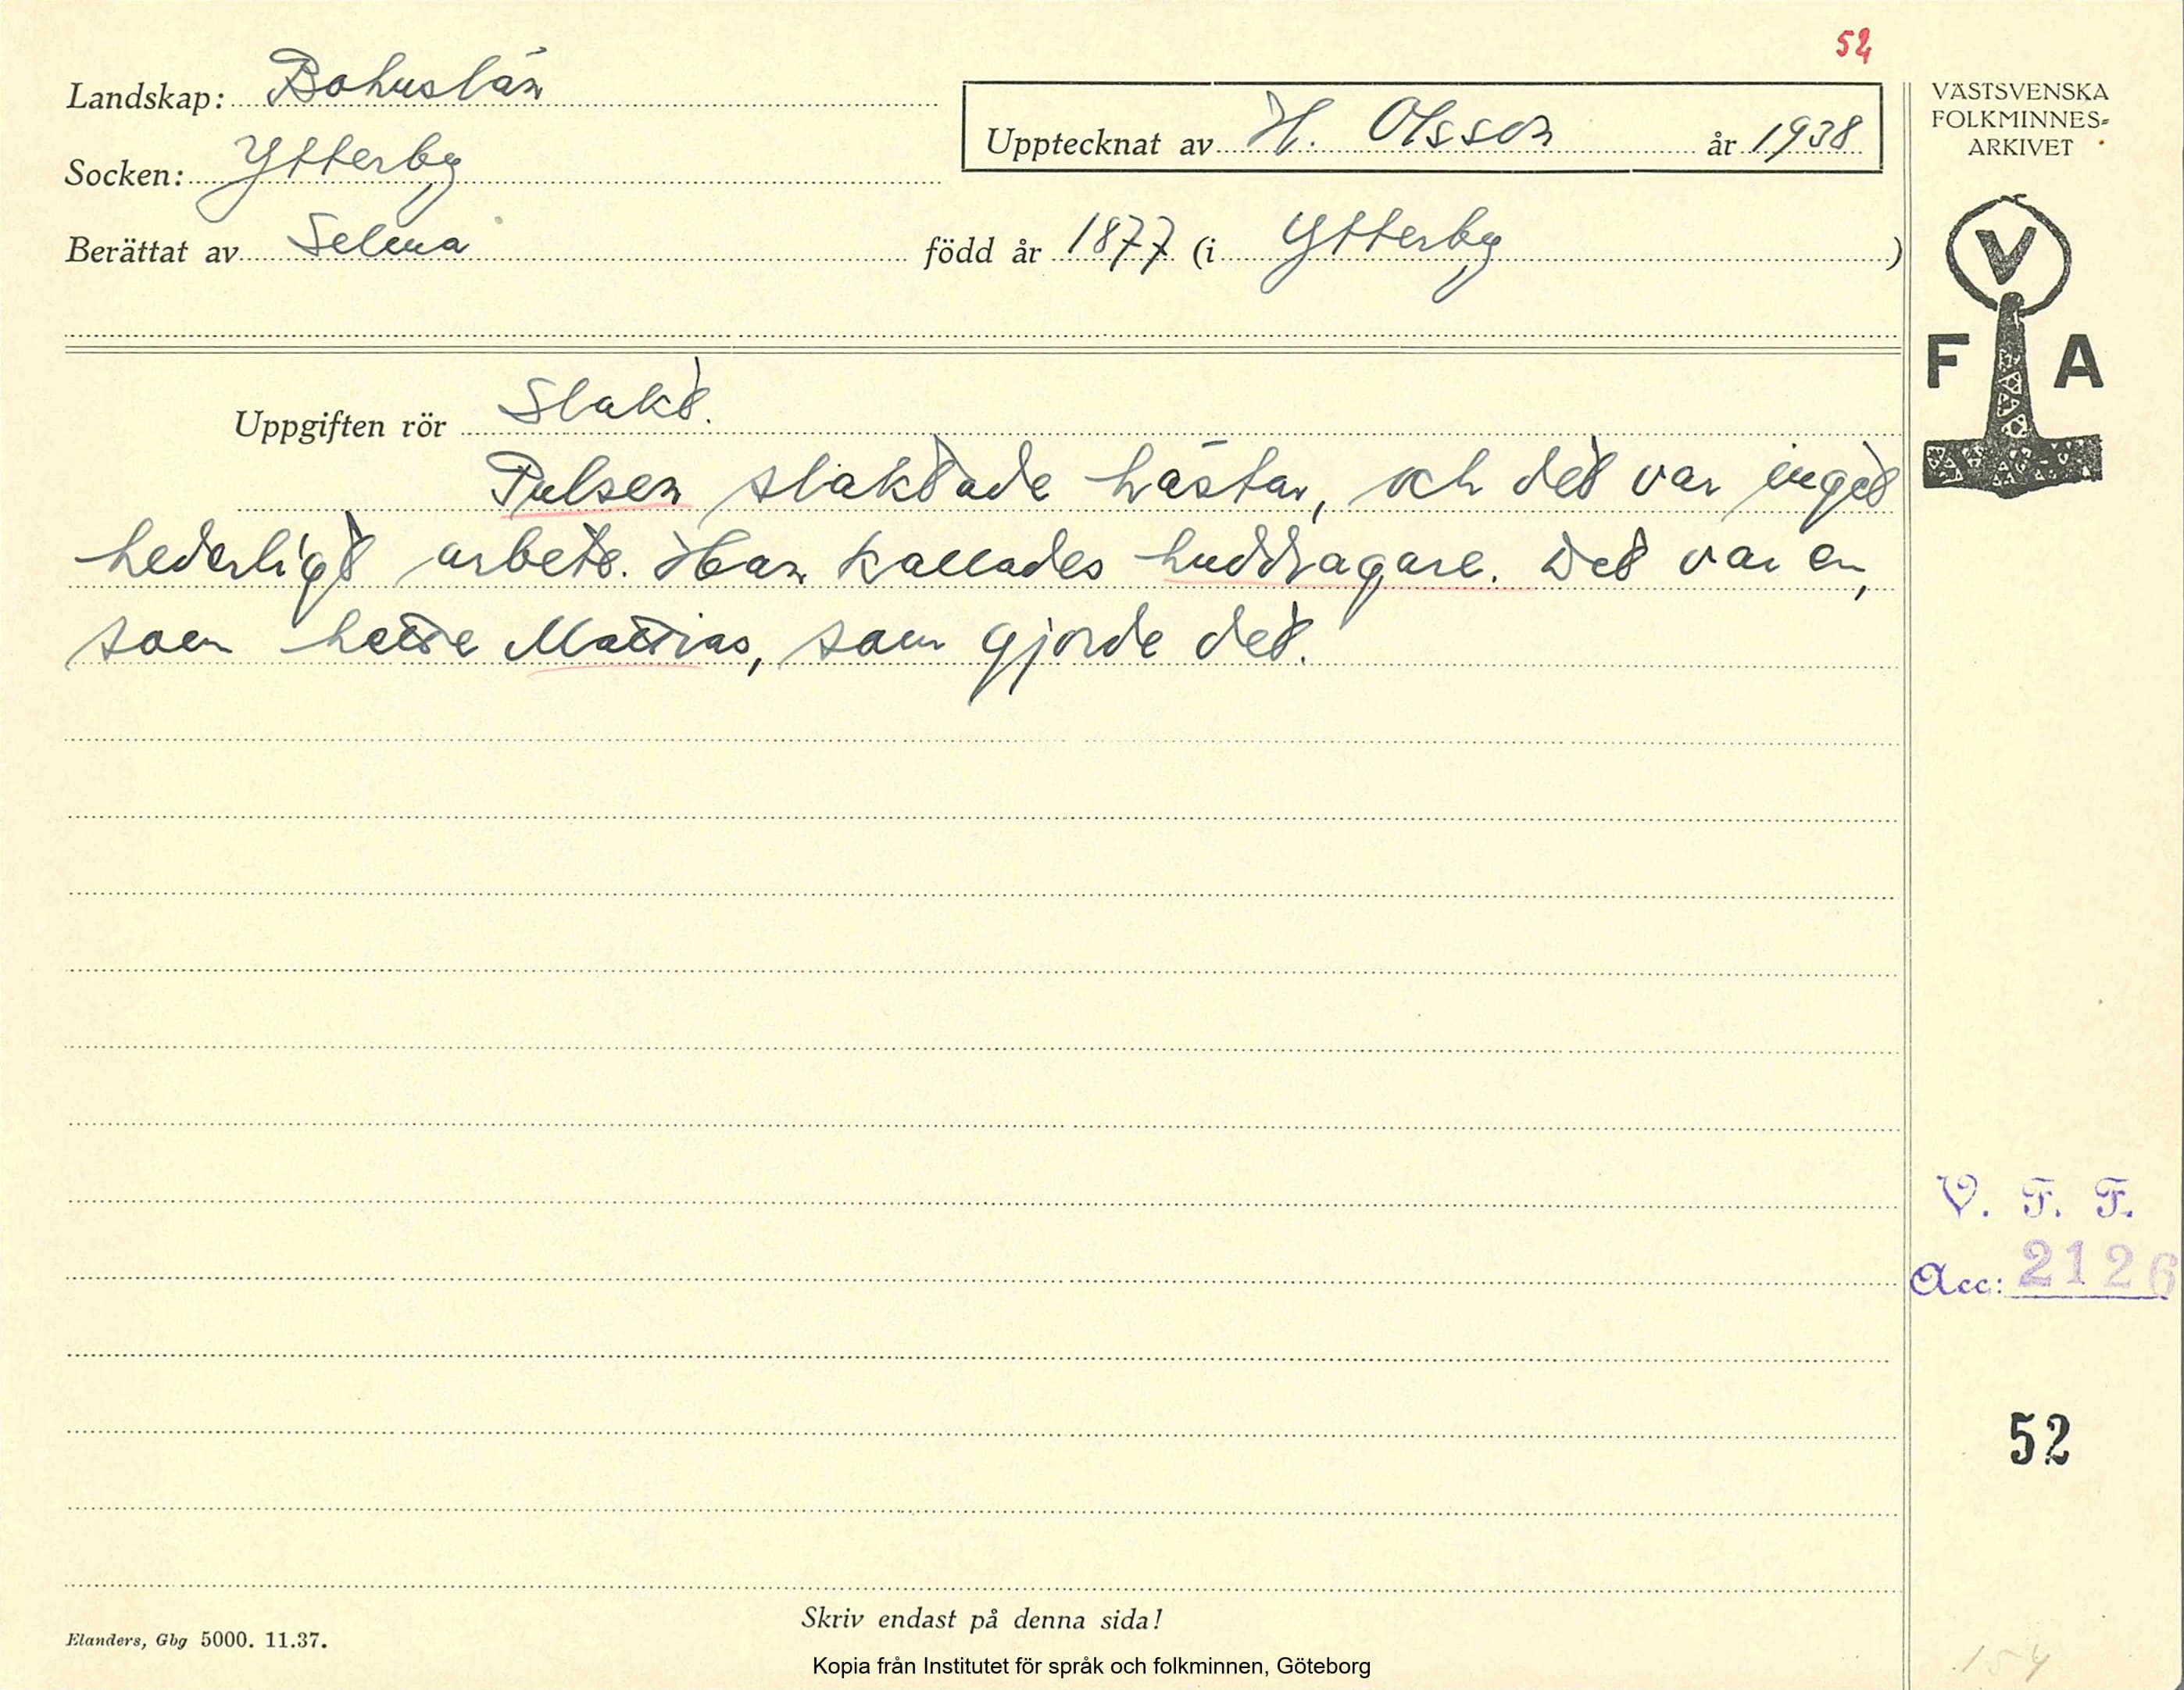 52
Landskap: Bohuslän
Upptecknat av H. Olsson år 1938
Socken: Ytterby
Berättat av Selma född år 1877 (i Ytterby)
Uppgiften rör Slakt.
Pulsen slaktade hästar, och det var inget
hederligt arbete. Han kallades huddragare. Det var en,
som hette Mattias, som gjorde det.
VÄSTSVENSKA
FOLKMINNES-
ARKIVET
V
F A
V. F. F.
Acc: 2126
52
Skriv endast på denna sida!
Elanders, Gbg 5000. 11.37.
Kopia från Institutet för språk och folkminnen, Göteborg
154